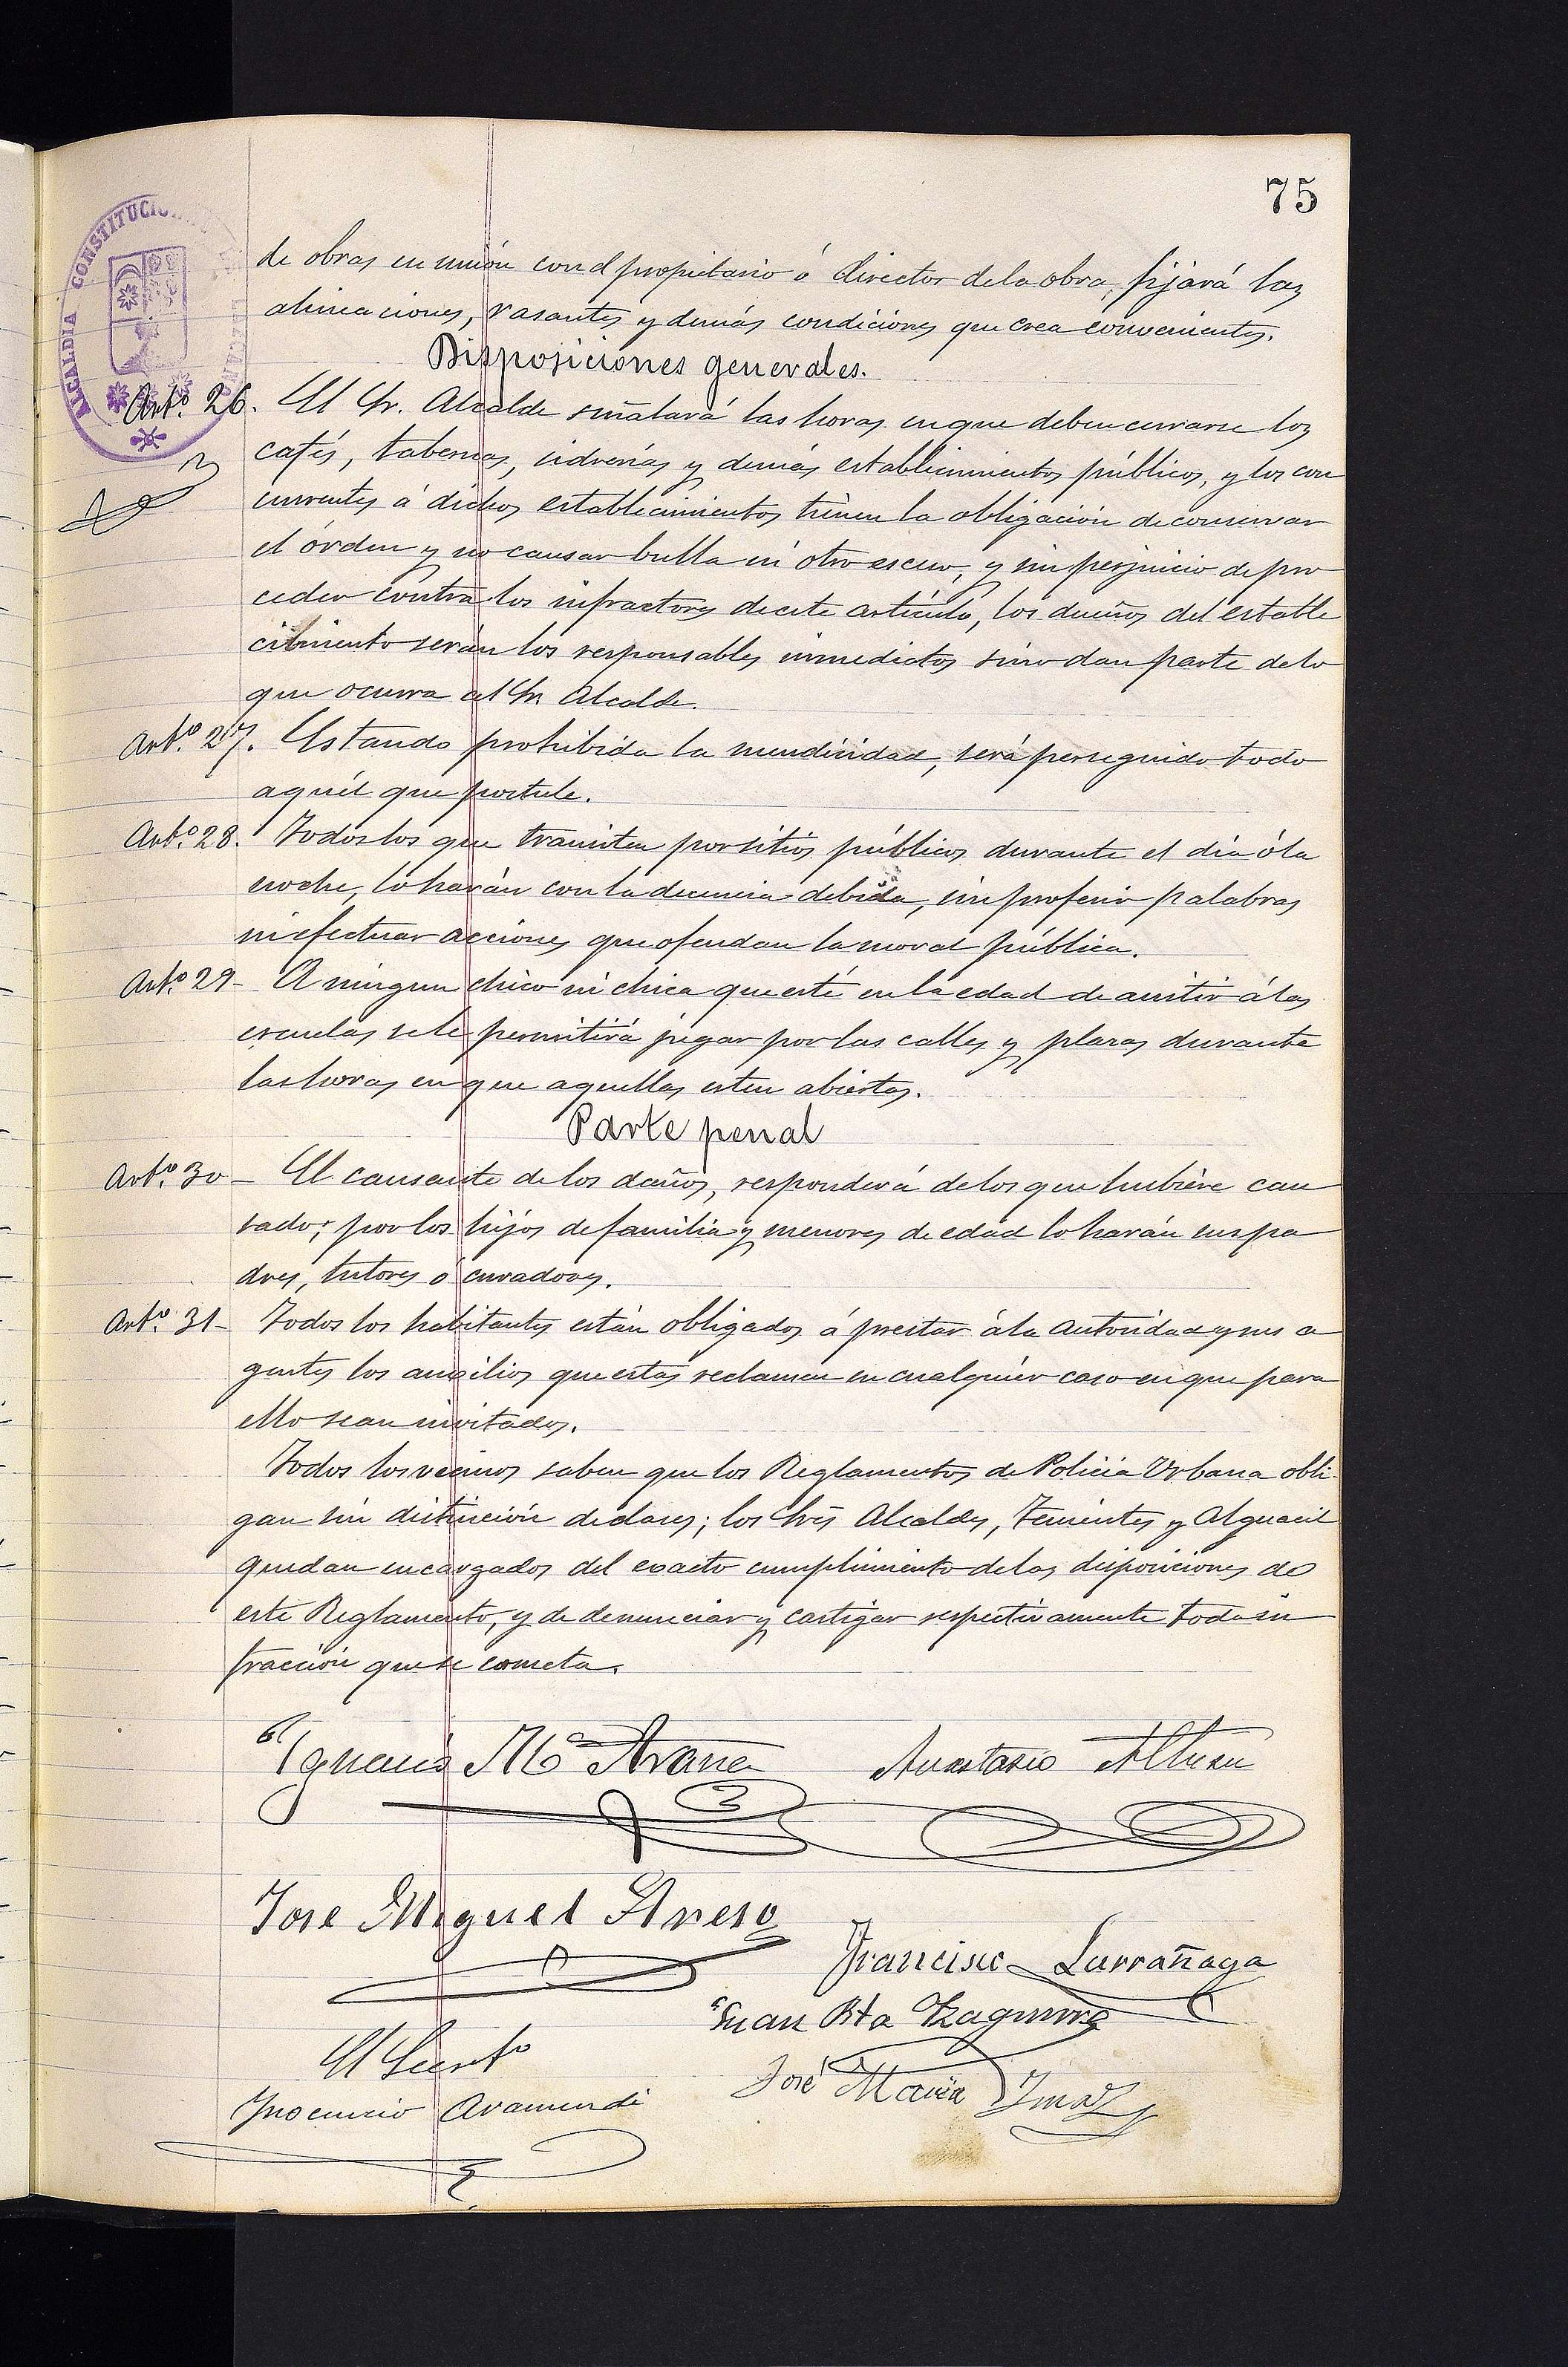 75
ALCALDIA CONSTITUCIONAL
de obras en unión con el propietario ó director de la obra, fijará las
alineaciones, rasantes y demás condiciones que crea convenientes.
Disposiciones generales.
Artº. 26. El Sr. Alcalde señalará las horas en que deben cerrarse los
cafés, tabernas, sidrerías y demás establecimientos públicos, y los con
currentes á dichos establecimientos tienen la obligación de conservar
el órden y no causar bulla ni otro esceso, y sin perjuicio de pro
ceder contra los infractores de este artículo, los dueños del estable
cimiento serán los responsables inmediatos sino dan parte de lo
que ocurra al Sr. Alcalde.
Artº. 27. Estando prohibida la mendicidad, será perseguido todo
aquél que postule.
Artº. 28. Todos los que transiten por sitios públicos durante el día ó la
noche, lo harán con la decencia debida, sin proferir palabras
ni efectuar acciones que ofendan la moral pública.
Artº. 29- A ningun chico ni chica que esté en la edad de asistir á las
escuelas se le permitirá jugar por las calles y plazas durante
las horas en que aquellas esten abiertas.
Parte penal
Artº. 30- El causante de los daños, responderá de los que hubiere cau
sado; por los hijos de familia y menores de edad lo harán sus pa
dres, tutores ó curadores.
Artº. 31- Todos los habitantes están obligados á prestar á la Autoridad y sus a
gentes los auxilios que estos reclamen en cualquier caso en que para
ello sean invitados.
Todos los vecinos saben que los Reglamentos de Policía Urbana obli-
gan sin distinción de clases; los Sres Alcaldes, Tenientes y Alguacil
quedan encargados del exacto cumplimiento de las disposiciones de
este Reglamento, y de denunciar y castigar respectivamente toda in
fracción que se cometa.
Ygnacio Mª Arana Anastasio Altuna
Jose Miguel Areso
Francisco Larrañaga
Juan Bta Yzaguirre
El Secretº
José Maria Imaz
Ynocencio Aramendi